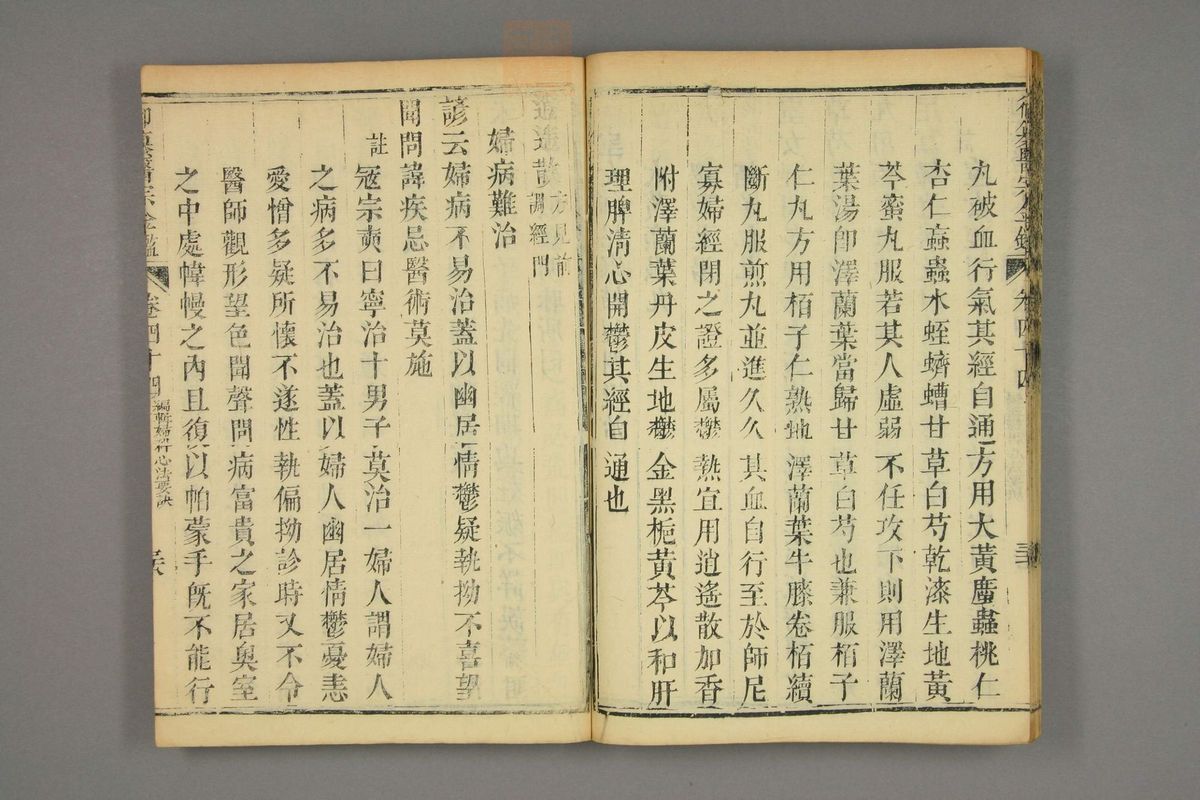 丸破血行氣其經自通方用大黃䗪蟲桃仁
杏仁䖟蟲水蛭蠐螬甘草白芍乾漆生地黃
芩蜜丸服若其人虛弱不任攻下則用澤蘭
葉湯卽澤蘭葉當歸甘草白芍也兼服栢子
仁丸方用栢子仁熟地澤蘭葉牛膝卷栢續
斷丸服煎丸並進久久其血自行至於師尼
寡婦經閉之證多屬鬱熱宜用逍遙散加香
附澤蘭葉丹皮生地鬱金黑梔黃芩以和肝
理脾清心開鬱其經自通也
逍遙散方見前調經門
婦病難治
諺云婦病不易治蓋以幽居情鬱疑執拗不喜望
聞問諱疾忌醫術莫施
註 寇宗奭曰寧治十男子莫治一婦人謂婦人
之病多不易治也蓋以婦人幽居情鬱憂恚
愛憎多疑所懷不遂性執偏拗診時又不令
醫師觀形望色聞聲問病富貴之家居奧室
之中處幃幔之內且復以帕蒙手旣不能行
御纂醫宗金鑑 卷四十四 編輯婦科心法要訣